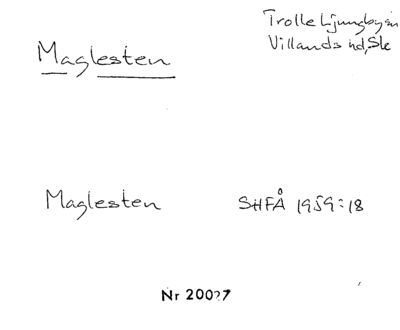 Maglesten
Trolle Ljungby sn
Villands hd, Sk
Maglesten
SHFÅ 1959:18
Nr 20027